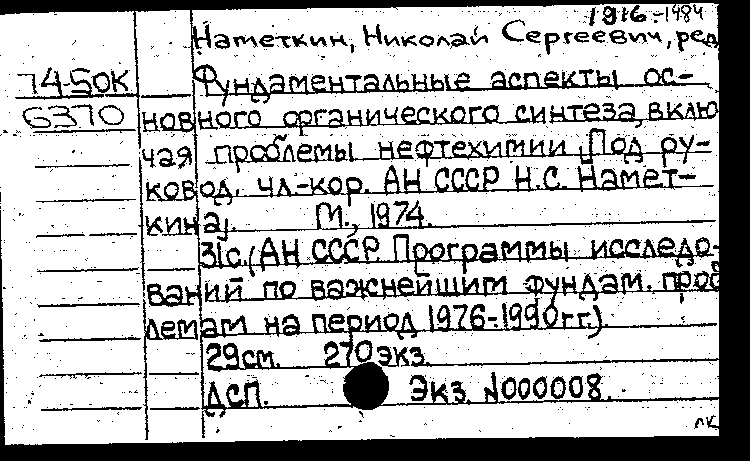 1916-1984
Наметкин, Николай Сергеевич, ред
74-50К Фундаментальные аспекты ос-
6370 новного органического синтеза, вклю
чая проблемы нефтехимии. Под ру-
ковод. чл.-кор. АН СССР Н.С. Намет-
кина. М., 1974.
31с. (АН СССР. Программы исследо-
ваний по важнейшим фундам. проб
лемам на период 1976-1990гг.)
29см. 270 экз.
ДСП. Экз. №000008.
ЛК